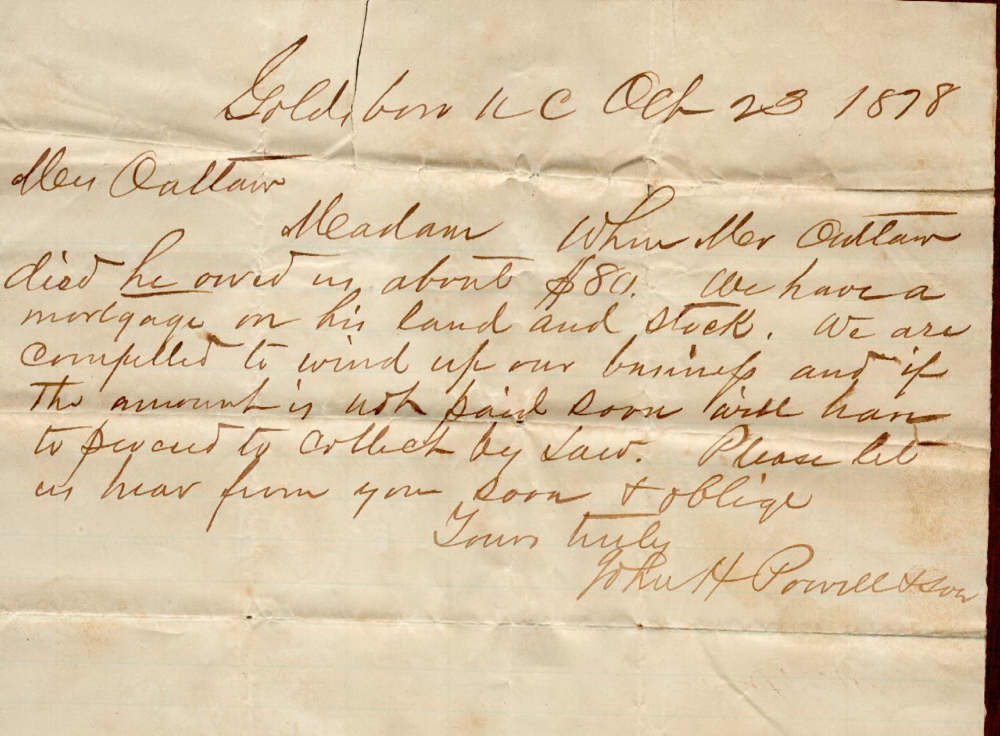 Goldsboro N C Oct 23 1878
Mrs Outlaw
Madam When Mr Outlaw
died he owed us about $80. We have a
mortgage on his land and stock. We are
compelled to wind up our business and if
the amount is not paid soon will have
to proceed to collect by Law. Please let
us hear from you soon & oblige
Yours truly
John H Powell & Son